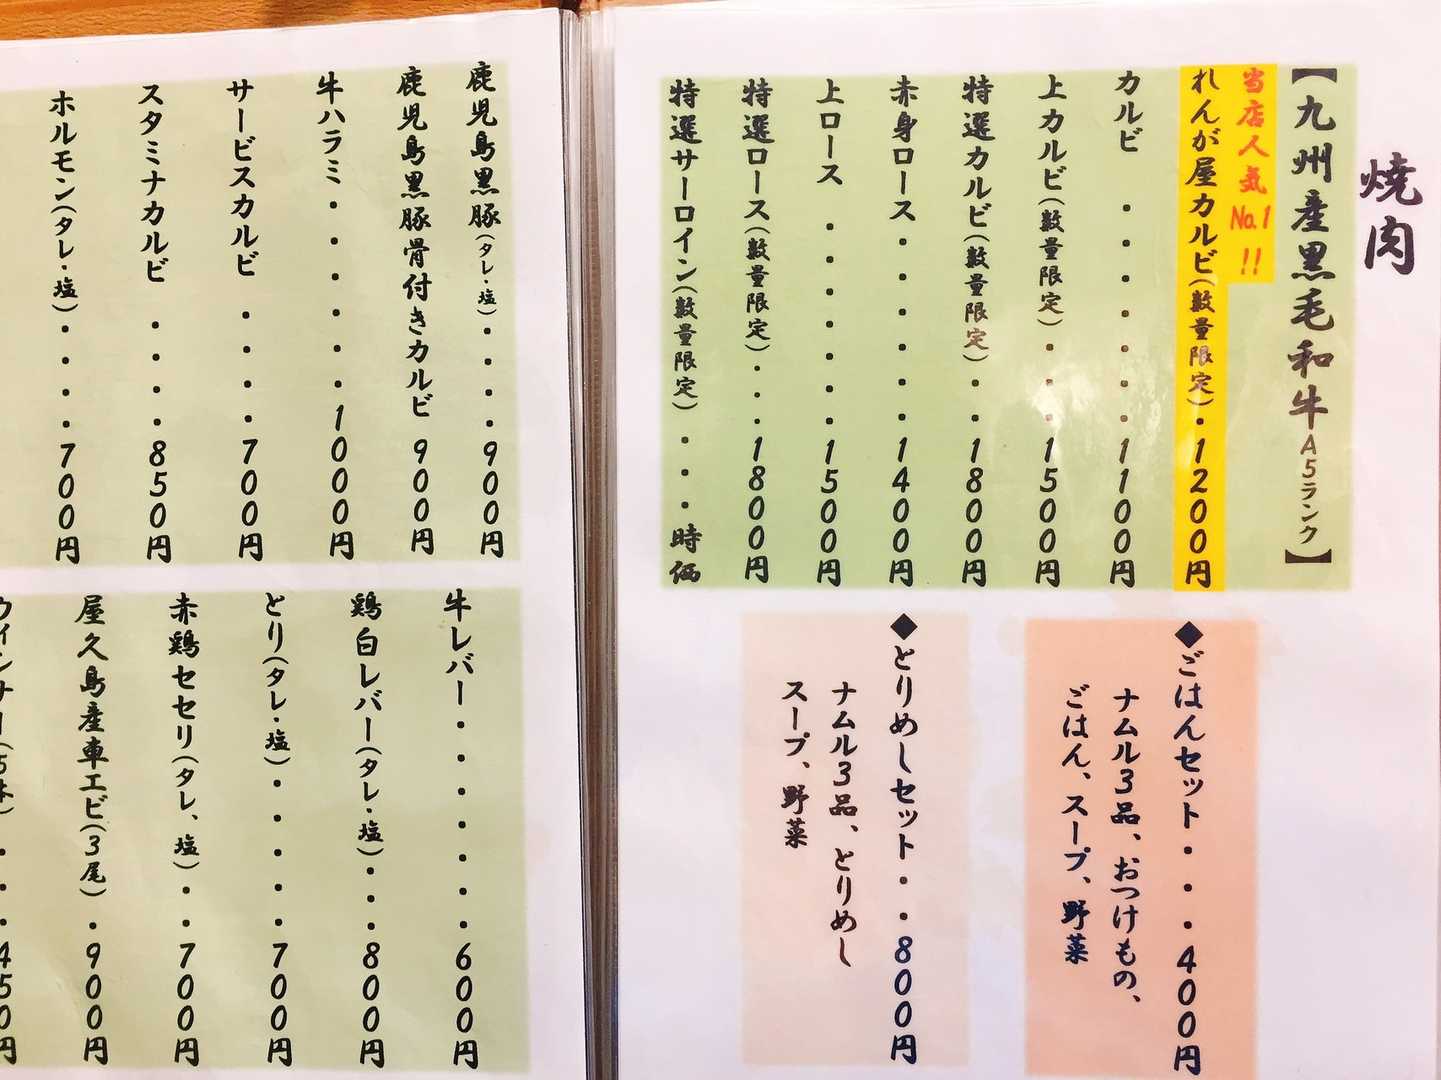 焼肉
【九州産黒毛和牛A5ランク】
当店人気No.1!!
れんが屋カルビ(数量限定)・1200円
カルビ・・・・・・・1100円
上カルビ(数量限定)・・・1500円
特選カルビ(数量限定)・・1800円
赤身ロース・・・・・・1400円
上ロース・・・・・・・1500円
特選ロース(数量限定)・・・1800円
特選サーロイン(数量限定)・・・時価
◆ごはんセット・・・400円
ナムル3品、おつけもの、
ごはん、スープ、野菜
◆とりめしセット・・・800円
ナムル3品、とりめし
スープ、野菜
鹿児島黒豚(タレ・塩)・・・・900円
鹿児島黒豚骨付きカルビ 900円
牛ハラミ・・・・・・1000円
サービスカルビ・・・・700円
スタミナカルビ・・・・850円
ホルモン(タレ・塩)・・・・700円
牛レバー・・・・・・・600円
鶏白レバー(タレ・塩)・・・800円
とり(タレ・塩)・・・・・700円
赤鶏セセリ(タレ、塩)・・700円
屋久島産車エビ(3尾)・900円
ウィンナー(5本)・・・450円